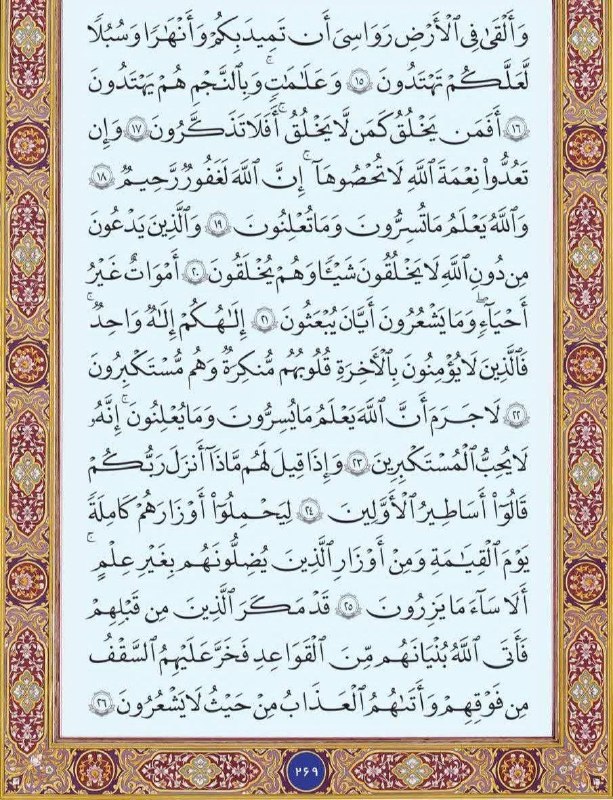 وَأَلْقَىٰ فِي ٱلْأَرْضِ رَوَٰسِيَ أَن تَمِيدَ بِكُمْ وَأَنْهَٰرًا وَسُبُلًا
لَّعَلَّكُمْ تَهْتَدُونَ ١٥ وَعَلَٰمَٰتٍ ۚ وَبِٱلنَّجْمِ هُمْ يَهْتَدُونَ
١٦ أَفَمَن يَخْلُقُ كَمَن لَّا يَخْلُقُ ۗ أَفَلَا تَذَكَّرُونَ ١٧ وَإِن
تَعُدُّوا۟ نِعْمَةَ ٱللَّهِ لَا تُحْصُوهَآ ۗ إِنَّ ٱللَّهَ لَغَفُورٌ رَّحِيمٌ ١٨
وَٱللَّهُ يَعْلَمُ مَا تُسِرُّونَ وَمَا تُعْلِنُونَ ١٩ وَٱلَّذِينَ يَدْعُونَ
مِن دُونِ ٱللَّهِ لَا يَخْلُقُونَ شَيْـًٔا وَهُمْ يُخْلَقُونَ ٢٠ أَمْوَٰتٌ غَيْرُ
أَحْيَآءٍ ۖ وَمَا يَشْعُرُونَ أَيَّانَ يُبْعَثُونَ ٢١ إِلَٰهُكُمْ إِلَٰهٌ وَٰحِدٌ ۚ
فَٱلَّذِينَ لَا يُؤْمِنُونَ بِٱلْءَاخِرَةِ قُلُوبُهُم مُّنكِرَةٌ وَهُم مُّسْتَكْبِرُونَ
٢٢ لَا جَرَمَ أَنَّ ٱللَّهَ يَعْلَمُ مَا يُسِرُّونَ وَمَا يُعْلِنُونَ ۚ إِنَّهُۥ
لَا يُحِبُّ ٱلْمُسْتَكْبِرِينَ ٢٣ وَإِذَا قِيلَ لَهُم مَّاذَآ أَنزَلَ رَبُّكُمْ ۙ
قَالُوٓا۟ أَسَٰطِيرُ ٱلْأَوَّلِينَ ٢٤ لِيَحْمِلُوٓا۟ أَوْزَارَهُمْ كَامِلَةً
يَوْمَ ٱلْقِيَٰمَةِ ۙ وَمِنْ أَوْزَارِ ٱلَّذِينَ يُضِلُّونَهُم بِغَيْرِ عِلْمٍ ۗ
أَلَا سَآءَ مَا يَزِرُونَ ٢٥ قَدْ مَكَرَ ٱلَّذِينَ مِن قَبْلِهِمْ
فَأَتَى ٱللَّهُ بُنْيَٰنَهُم مِّنَ ٱلْقَوَاعِدِ فَخَرَّ عَلَيْهِمُ ٱلسَّقْفُ
مِن فَوْقِهِمْ وَأَتَىٰهُمُ ٱلْعَذَابُ مِنْ حَيْثُ لَا يَشْعُرُونَ ٢٦
٢٦٩